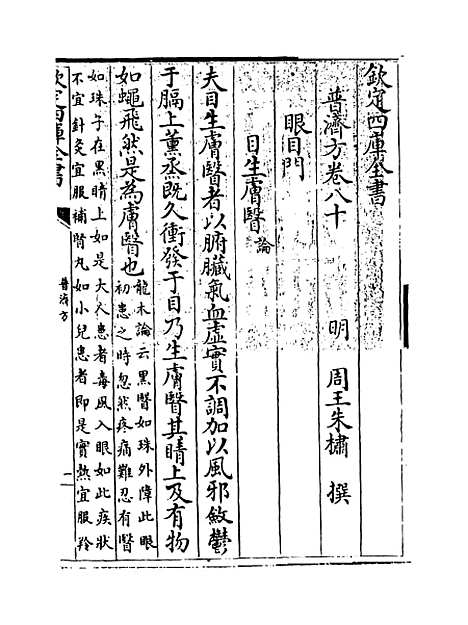 欽定四庫全書
普濟方卷八十
明 周王朱橚 撰
眼目門
目生膚翳論
夫目生膚翳者以腑臟氣血虛實不調加以風邪斂鬱
于膈上薰烝既久衝發于目乃生膚翳其睛上及有物
如蠅飛然是為膚翳也龍木論云黒翳如珠外障此眼
初患之時忽然疼痛難忍有翳
如珠子在黒睛上如是大人患者毒風入眼如此疾狀
不宜針灸宜服補腎丸如小兒患者即是實熱宜服羚
欽定四庫全書
普濟方
一